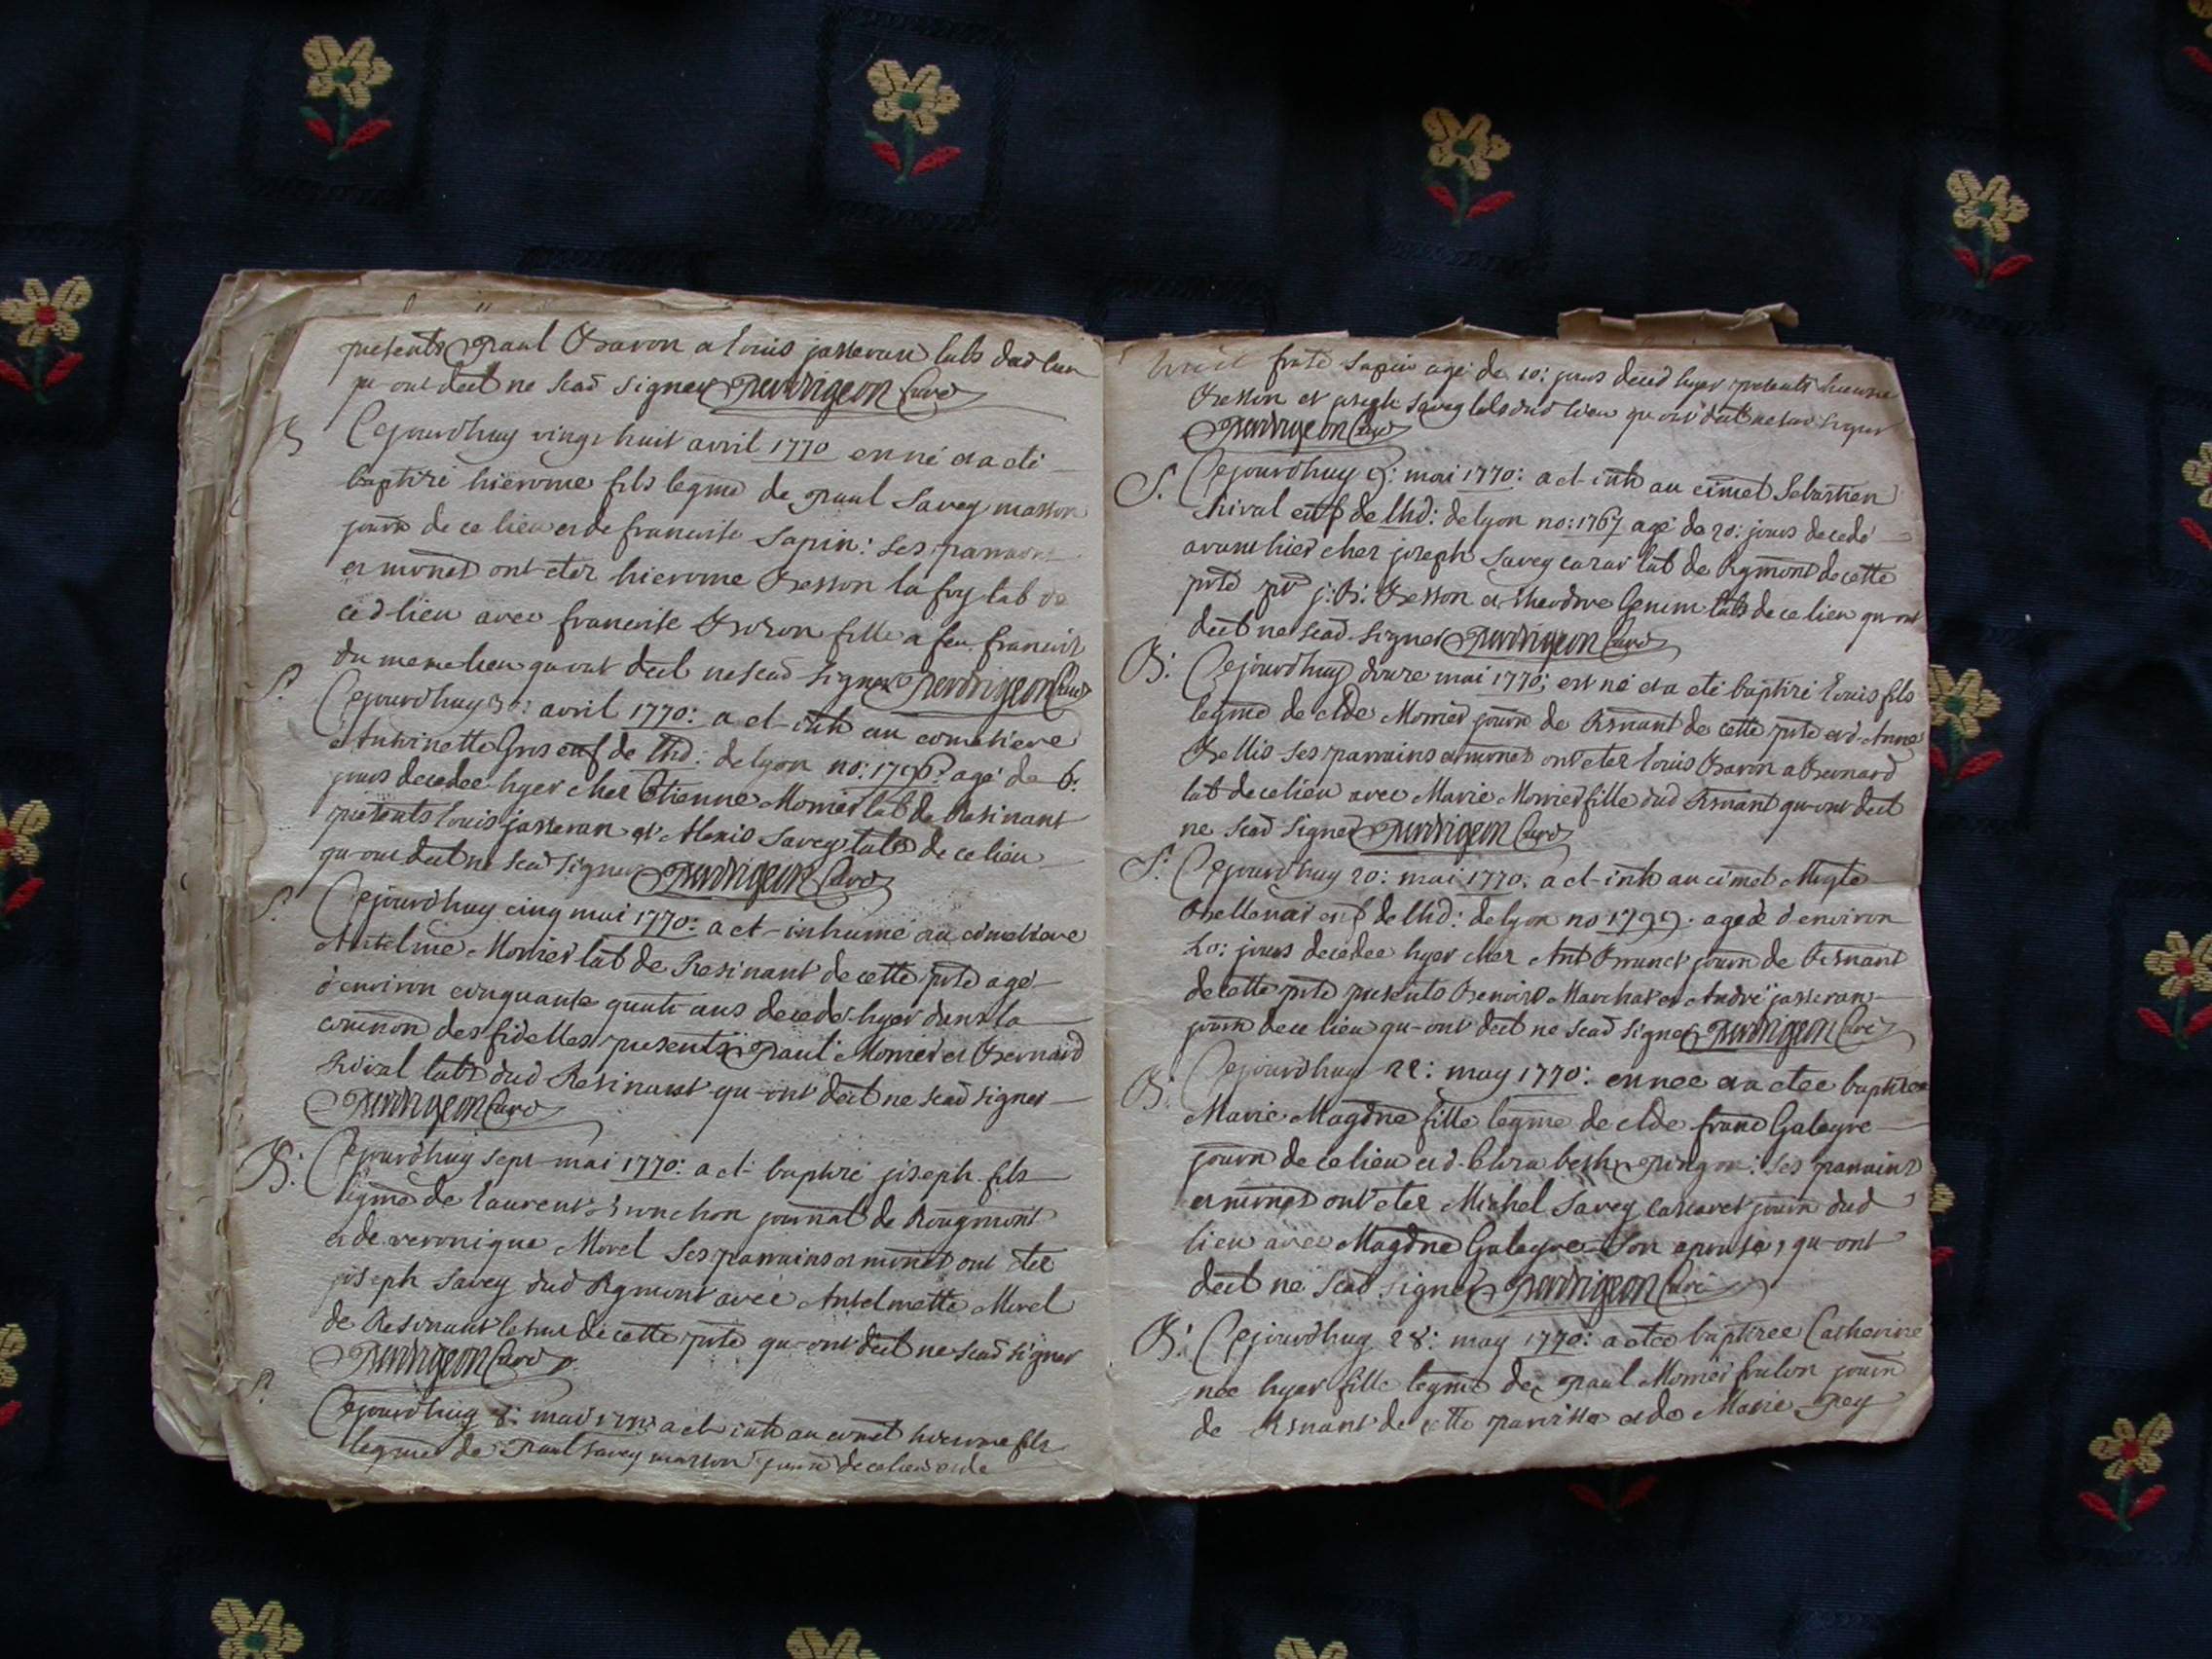 presents Paul Bavon a Louis jasseran labs dud lieu
qu-ont decl ne scad signer Perdrigeon Curé
B Cejourdhuy vingt huit avril 1770 est né et a eté
baptizé hierome fils legme de Paul Savey masson
journ de ce lieu et de francoise Sapin: Ses parrains
et mones ont eter hierome Besson la foy lab de
ced lieu avec francoise fille a feu francois
du meme lieu qu-ont decl ne scad signer Perdrigeon Curé
S. Cejourdhuy 30: avril 1770: a et-inh au cimetiere
Antoinette Gros enf de lhd: de lyon no: agé de 6:
jours decedee hyer cher Etienne Monier lab de Resinant
presents Louis jasseran et Alexis Savey labs de ce lieu
qu-ont decl ne scad signer Perdrigeon Curé
S. Cejourdhuy cinq mai 1770: a et-inhumé au cimetiere
Antelme Monier lab de Resinant de cette pssd agé
d'environ cinquante quatre ans decedé hyer dans la
comnon des fidelles presents Paul Monier et Bernard
labs dud Resinant qu-ont decl ne scad signer
Perdrigeon Curé
B: Cejourdhuy sept mai 1770: a et- baptizé joseph fils
legme de laurent journal de Rougmont
et de veronique Morel Ses parrains et mones ont eter
joseph Savey dud Rgmont avec Antelmette Morel
de Resinant le tout de cette pssd qu-ont decl ne scad signer
Perdrigeon Curé
S. Cejourdhuy 8: mai 1770: a et-inh au cimet hierome fils
legme de Paul Savey masson journ de ce lieu et de
Sapin agé de 10: jours deced hyer presents hierome
Besson et joseph Savey labs dud lieu qu-ont decl ne scad signer
Perdrigeon Curé
S. Cejourdhuy 9: mai 1770: a et-inh au cimet Sebastien
chival enf de lhd: de lyon no: 1767 agé de 20: jours decedé
avant hier cher joseph Savey lab de Rgmont de cette
pssd j: B: Besson et theodore Genin labs de ce lieu qu-ont
decl ne scad signer Perdrigeon Curé
B: Cejourdhuy douze mai 1770; est né et a eté baptizé Louis fils
legme de Clde Monier journ de Rsnant de cette pssd et d-Anne
Bellis Ses parrains et mones ont eter Louis Bavon a Bernard
lab de ce lieu avec Marie Monier fille dud Rsnant qu-ont decl
ne scad signer Perdrigeon Curé
S: Cejourdhuy 20: mai 1770: a et-inh au cimet
enf de lhd: de lyon no: 1799. ageé d'environ
jours decedee hyer cher Ant Brunet journ de Rsnant
de cette pssd presents Benoist Marchat et André jasseran
journ de ce lieu qu-ont decl ne scad signer Perdrigeon Curé
B: Cejourdhuy 22: may 1770: est nee et a etee baptizee
Marie Magdne fille legme de Clde franc Galeyre
journ de ce lieu et d-Elizabeth Pingon: Ses parrains
et mones ont eter Michel Savey journ dud
lieu avec Magdne Galeyre Son epouse, qu-ont
decl ne scad signer Perdrigeon Curé
B: Cejourdhuy 28: may 1770: a etee baptizee Catherine
nee hyer fille legme de Paul Monier journ
de Rsnant de cette parroisse et de Marie Pey